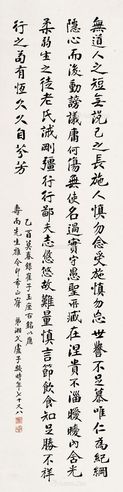 無道人之短無說己之長施人慎勿念受施慎勿忘世譽不足慕唯仁為紀綱
隱心而後動謗議庸何傷無使名過實守愚聖所臧在涅貴不淄曖曖內含光
柔弱生之徒老氏誡剛彊行行鄙夫志悠悠故難量慎言節飲食知足勝不祥
行之苟有恆久久自芬芳
乙酉莫春錄崔子玉座右銘以應
先生雅令即希 時年七十又八